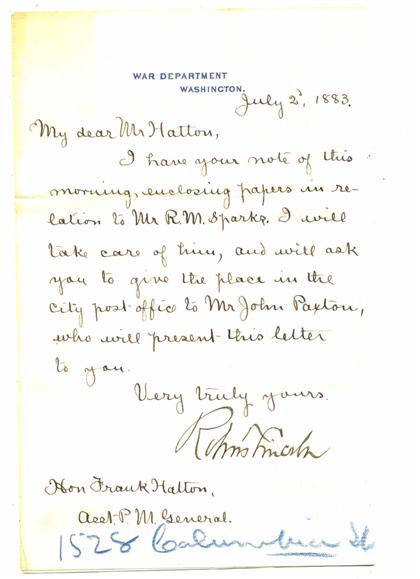 WAR DEPARTMENT
WASHINGTON.
July 2d, 1883.
My dear Mr Hatton,
I have your note of this
morning, enclosing papers in re-
lation to Mr R. M. Sparks. I will
take care of him, and will ask
you to give the place in the
city post-office to Mr John Paxton,
who will present this letter
to you.
Very truly yours.
Robt T Lincoln
Hon Frank Hatton,
Asst. P. M. General.
1528 Columbia St